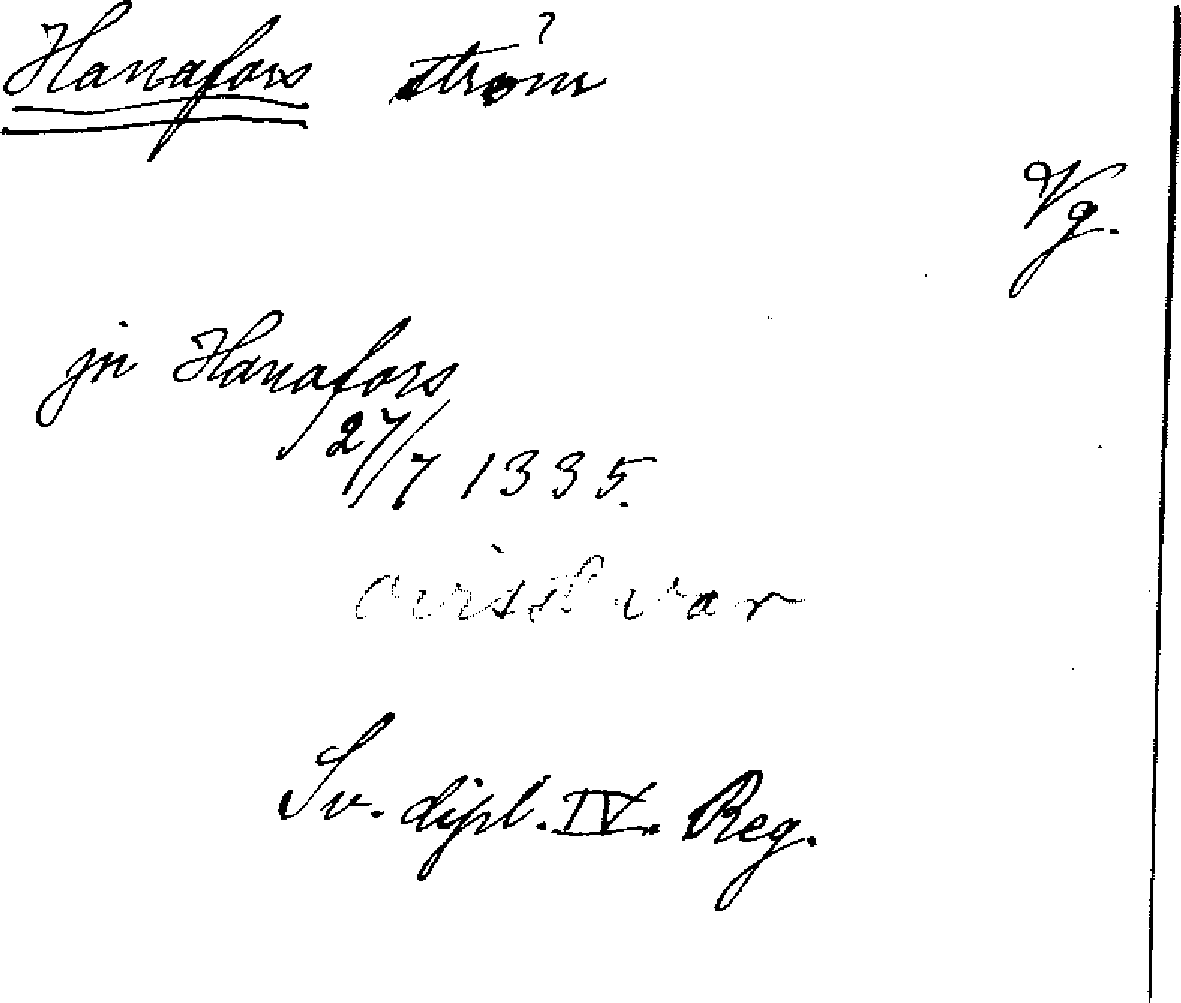 Hanafors ström ?
Vg.
jn Hanafors
27/7 1335.
ovisst var
Sv. dipl. IV. Reg.